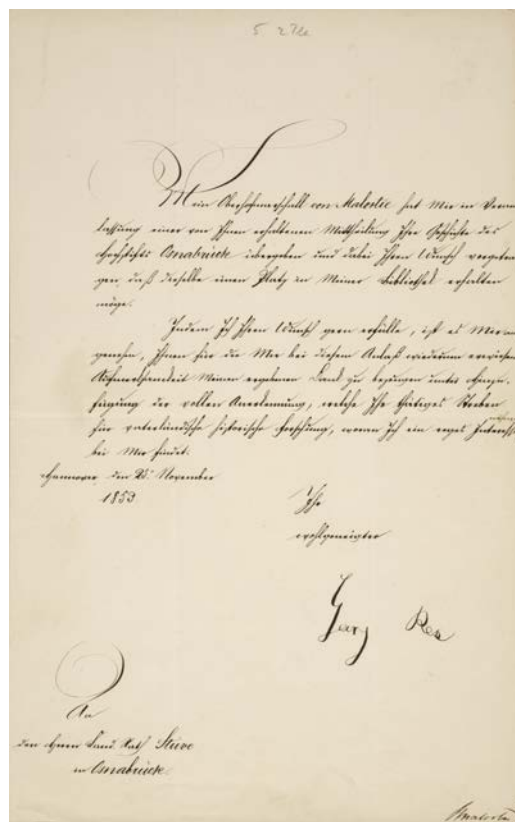 Mein Oberhofmarschall von Malortie hat Mir in Veran
lassung einer von Ihnen erhaltenen Mittheilung Ihre Geschichte des
Hochstifts Osnabrück übergeben und dabei Ihren Wunsch vorgetra
gen, daß dieselbe einen Platz in Meiner Bibliothek erhalten
möge.
Indem Ich Ihren Wunsch gern erfülle, ist es Mir an
genehm, Ihnen für die Mir bei diesem Anlaß wiederum erwiesene
Aufmerksamkeit Meinen ergebenen Dank zu bezeugen unter Hinzu-
fügung der vollen Anerkennung, welche Ihr thätiges Streben
für vaterländische historische Forschung, woran Ich ein reges Interesse
bei Mir findet.
Hannover den 25. November
1853
Ihr
wohlgeneigter
Georg Rex
An
den Herrn Land Rath Stüve
in Osnabrück
Malortie